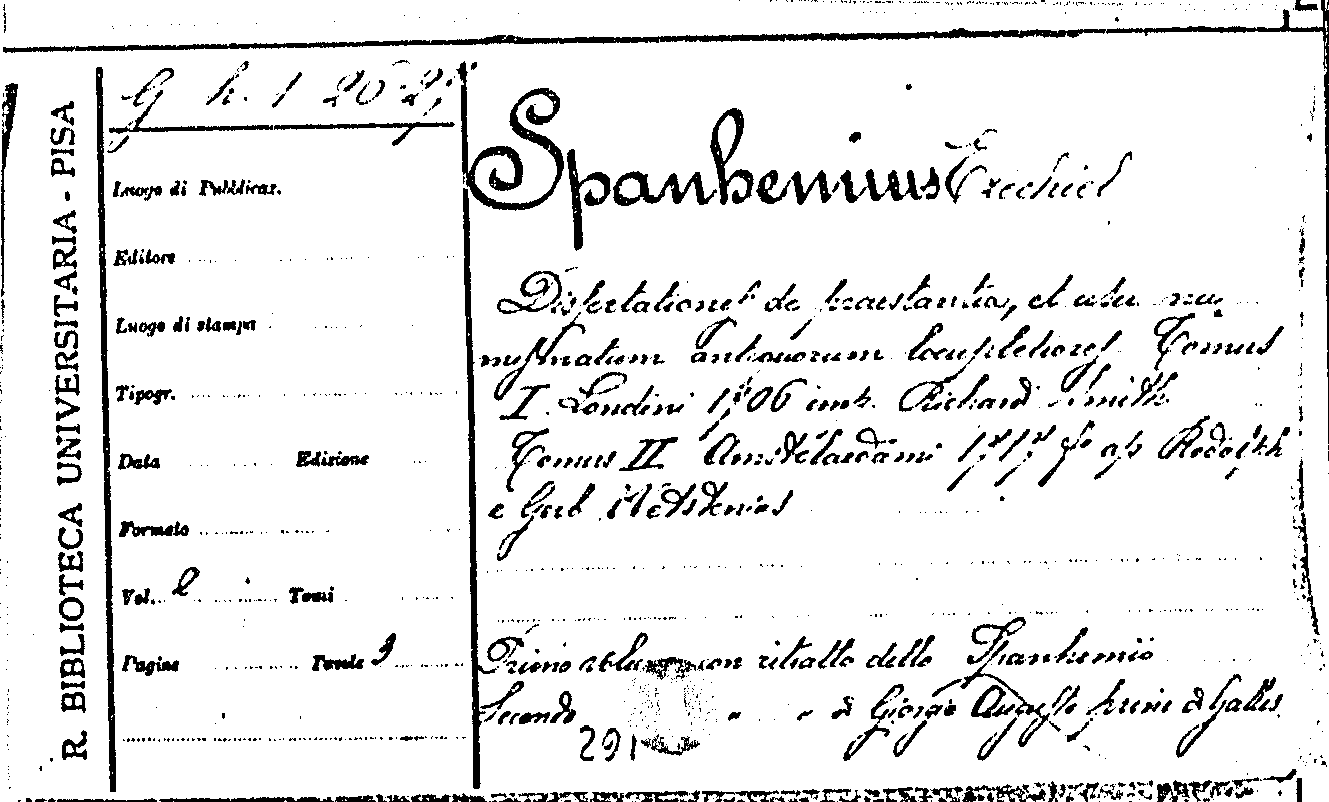 R. BIBLIOTECA UNIVERSITARIA - PISA
G h. 1 26-27
Luogo di Pubblicaz.
Editore
Luogo di stampa
Tipogr.
Data Edizione
Formato
Vol. 2 Tomi
Pagine Tavole 2
Spanhemius Ezechiel
Dissertationes de praestantia, et usu nu
mismatum antiquorum locupletiores Tomus
I. Londini 1706 imp. Richard Smith
Tomus II Amstelaedami 1717 fo ap Rodolph
e Gerb Wetstenios
Primo volume con ritratto dello Spanhemio
Secondo " " di Giorgio Augusto princ di Galles
291